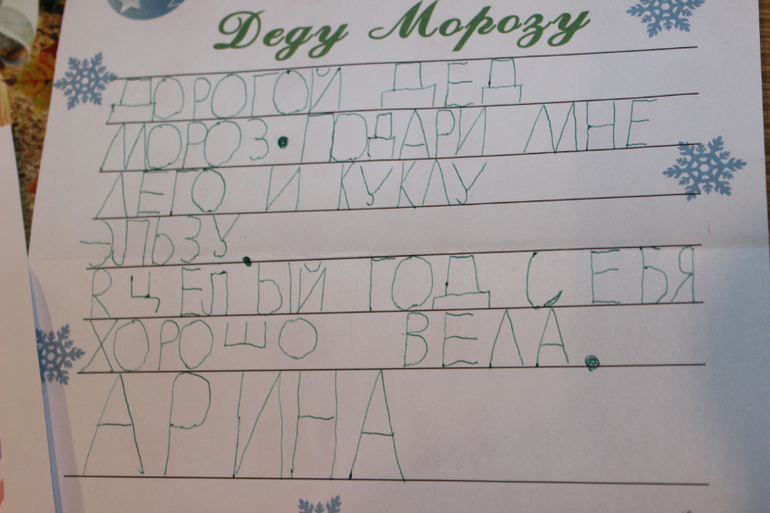 Деду Морозу
ДОРОГОЙ ДЕД
МОРОЗ. ПОДАРИ МНЕ
ЛЕГО И КУКЛУ
ЭЛЬЗУ.
Я ЦЕЛЫЙ ГОД СЕБЯ
ХОРОШО ВЕЛА.
АРИНА